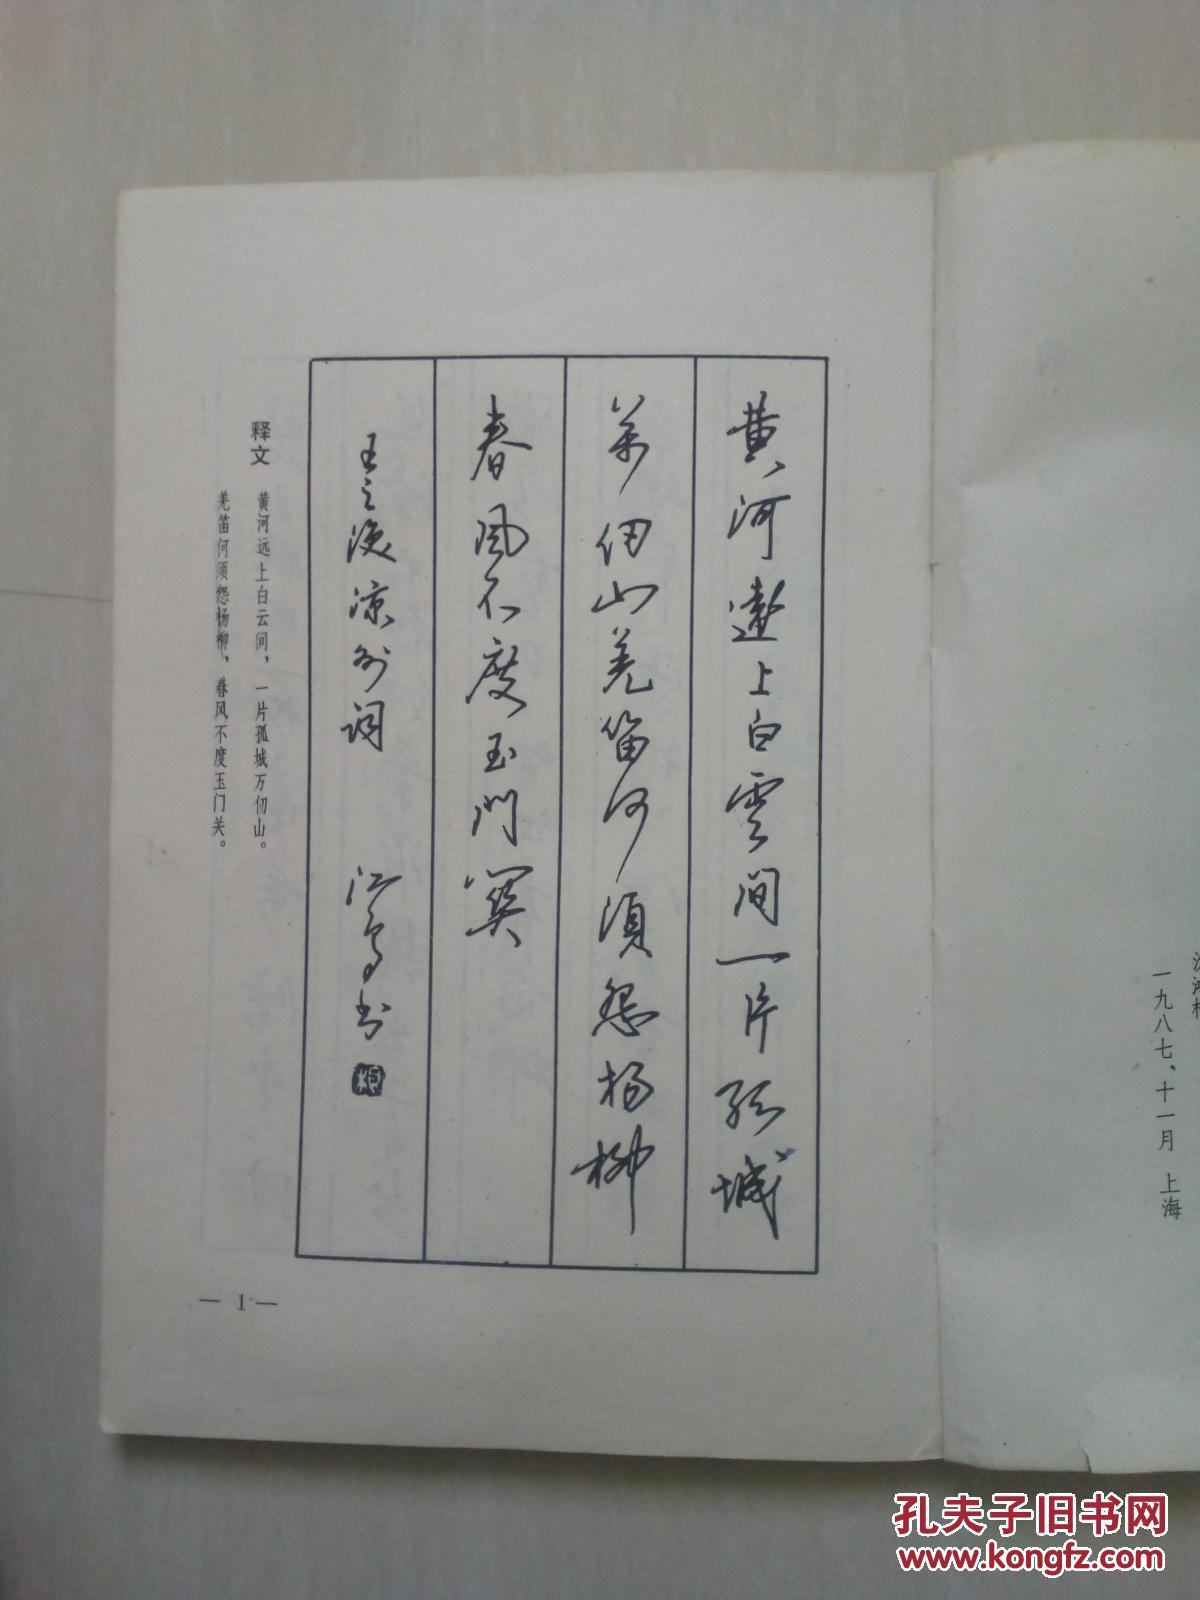 一九八七、十一月 上海
黄河遠上白雲間一片孤城
萬仞山羌笛何須怨杨柳
春風不度玉門關
王之涣凉州词 江鸟书
释文 黄河远上白云间，一片孤城万仞山。
羌笛何须怨杨柳，春风不度玉门关。
— 1 —
孔夫子旧书网
www.kongfz.com